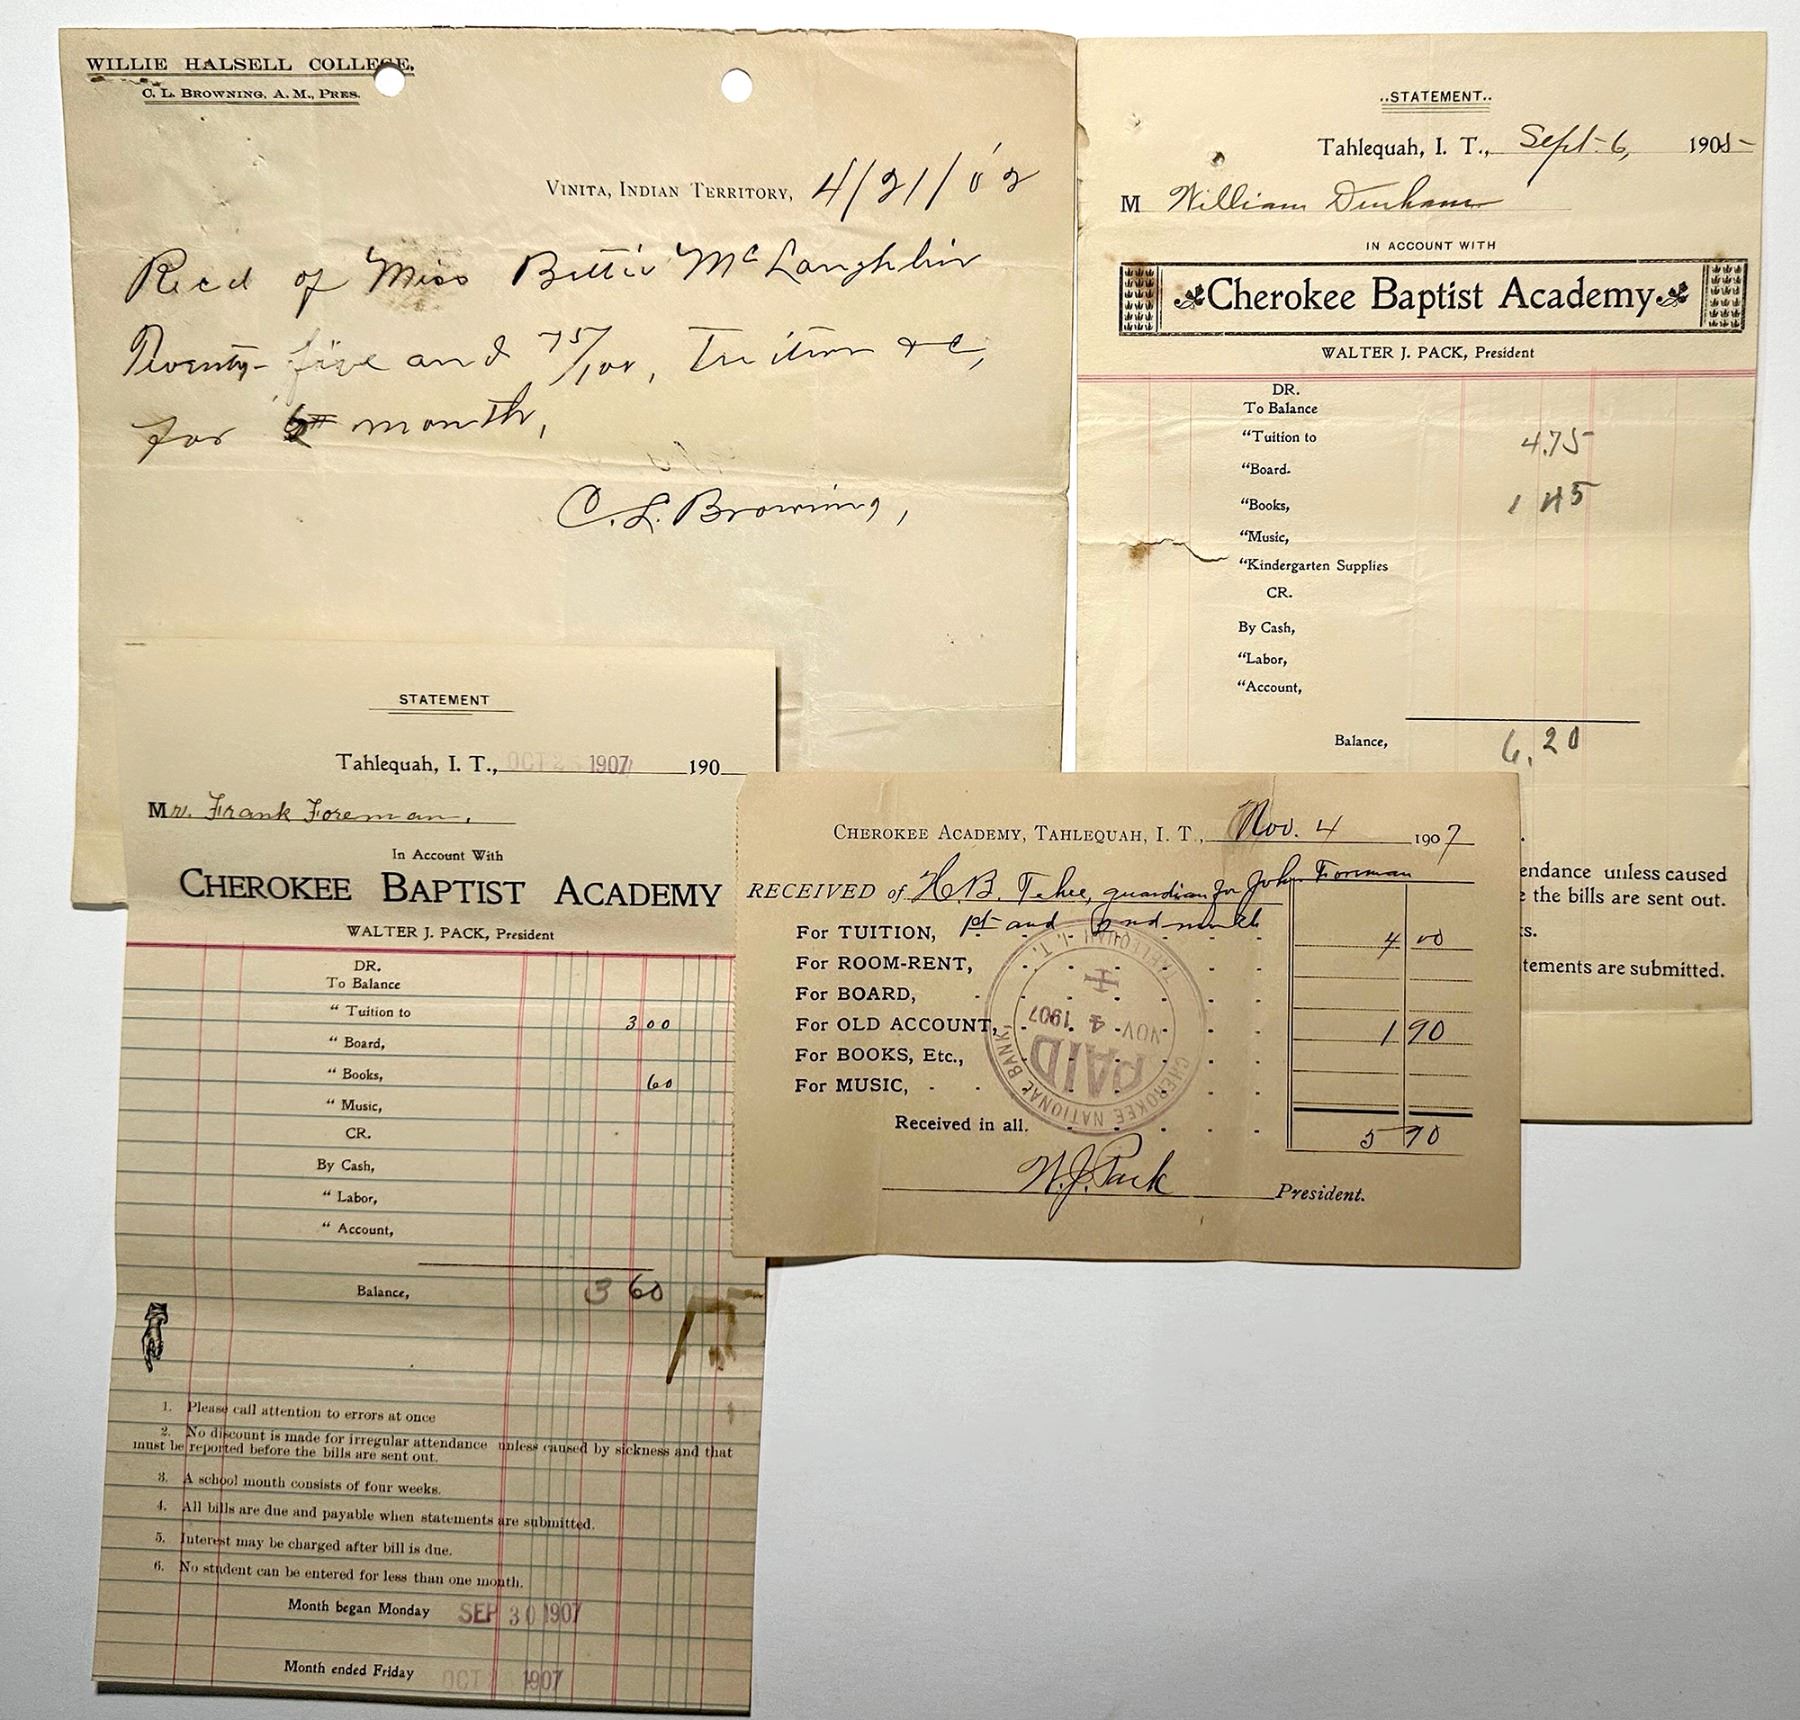 WILLIE HALSELL COLLEGE,
C. L. BROWNING, A. M., PRES.
VINITA, INDIAN TERRITORY, 4/21/02
Recd of Miss Bettie McLaughlin
Twenty-five and 75/100, Tuition &c,
for month,
C. L. Browning,
..STATEMENT..
Tahlequah, I. T., Sept. 6, 1905
M William Dunham
IN ACCOUNT WITH
Cherokee Baptist Academy
WALTER J. PACK, President
DR.
To Balance
“Tuition to 4.75
“Board.
“Books, 1 45
“Music,
“Kindergarten Supplies
CR.
By Cash,
“Labor,
“Account,
Balance, 6.20
endance unless caused
e the bills are sent out.
s.
tements are submitted.
STATEMENT
Tahlequah, I. T., OCT 25 1907 190
Mr. Frank Foreman,
In Account With
CHEROKEE BAPTIST ACADEMY
WALTER J. PACK, President
DR.
To Balance
“ Tuition to 3 00
“ Board,
“ Books, 60
“ Music,
CR.
By Cash,
“ Labor,
“ Account,
Balance, 3 60
1. Please call attention to errors at once
2. No discount is made for irregular attendance unless caused by sickness and that
must be reported before the bills are sent out.
3. A school month consists of four weeks.
4. All bills are due and payable when statements are submitted.
5. Interest may be charged after bill is due.
6. No student can be entered for less than one month.
Month began Monday SEP 30 1907
Month ended Friday OCT 1907
CHEROKEE ACADEMY, TAHLEQUAH, I. T., Nov. 4 1907
RECEIVED of H. B. Tehee, guardian for John Foreman
For TUITION, 1st and 2nd month 4 00
For ROOM-RENT,
For BOARD,
For OLD ACCOUNT, 1 90
For BOOKS, Etc.,
For MUSIC,
Received in all. 5 90
W. J. Pack President.
CHEROKEE NATIONAL BANK,
PAID
NOV 4 1907
TAHLEQUAH, I. T.